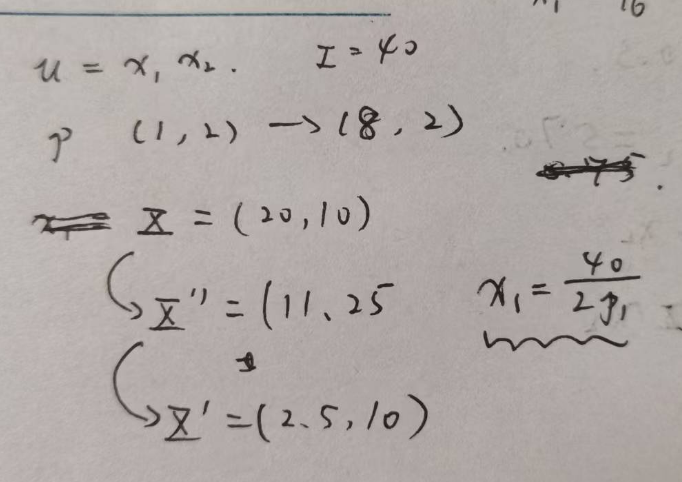 u = x₁ x₂. I = 40
P (1, 2) → (8, 2)
X = (20, 10)
X'' = (11.25
x₁ = 40 / 2p₁
X' = (2.5, 10)